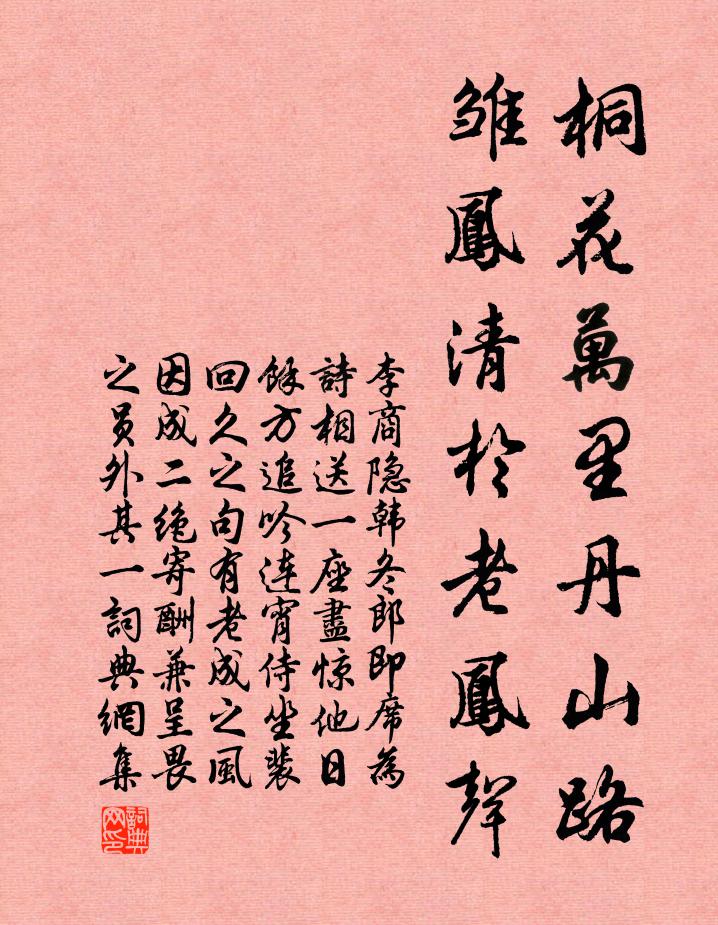 桐花萬里丹山路
雛鳳清於老鳳聲
李商隐韩冬郎即席為
詩相送一座盡惊他日
餘方追吟連宵侍坐裴
回久之句有老成之風
因成二绝寄酬兼呈畏
之员外其一詞典網集
詞典
网印